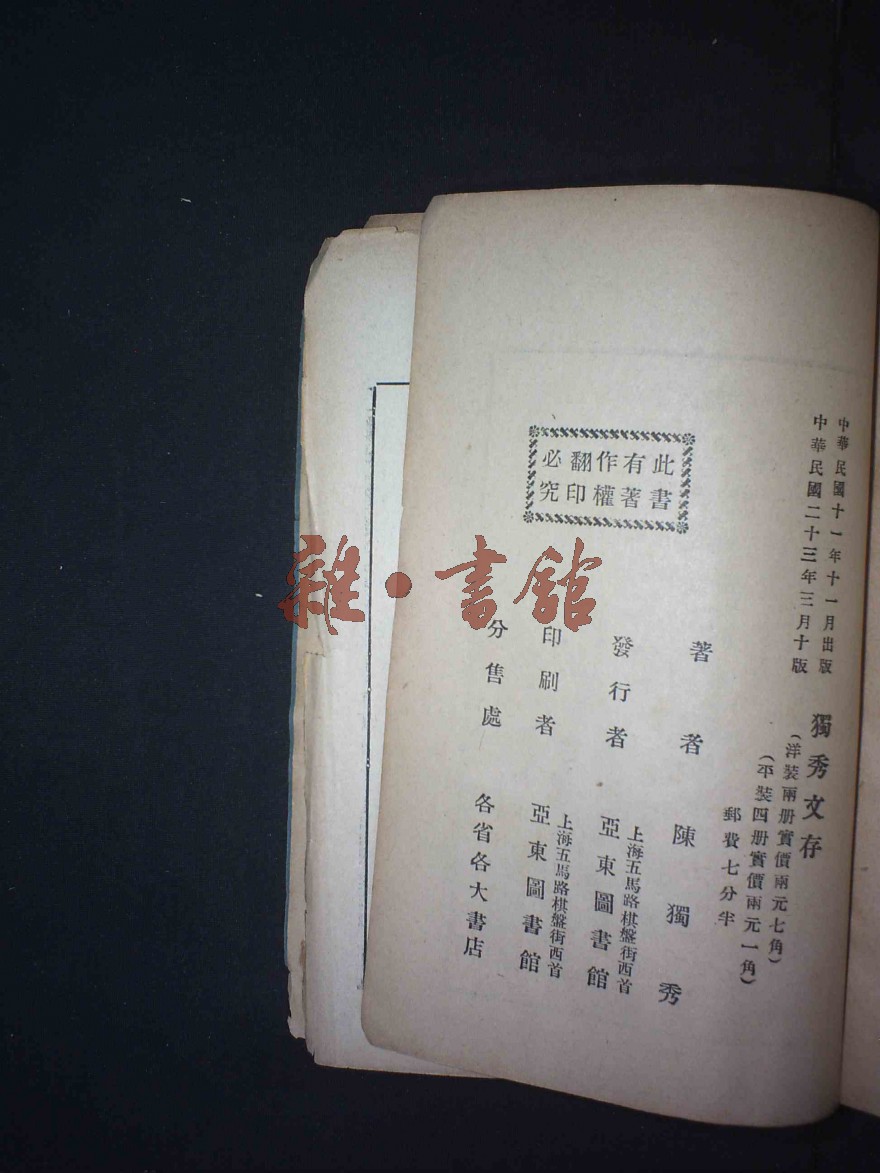 中華民國十一年十一月出版
中華民國二十三年三月十版
獨秀文存
(洋裝兩册實價兩元七角)
(平裝四册實價兩元一角)
郵費七分半
著者 陳獨秀
發行者 上海五馬路棋盤街西首
亞東圖書館
印刷者 上海五馬路棋盤街西首
亞東圖書館
分售處 各省各大書店
此書
有著
作權
翻印
必究
雜·書館